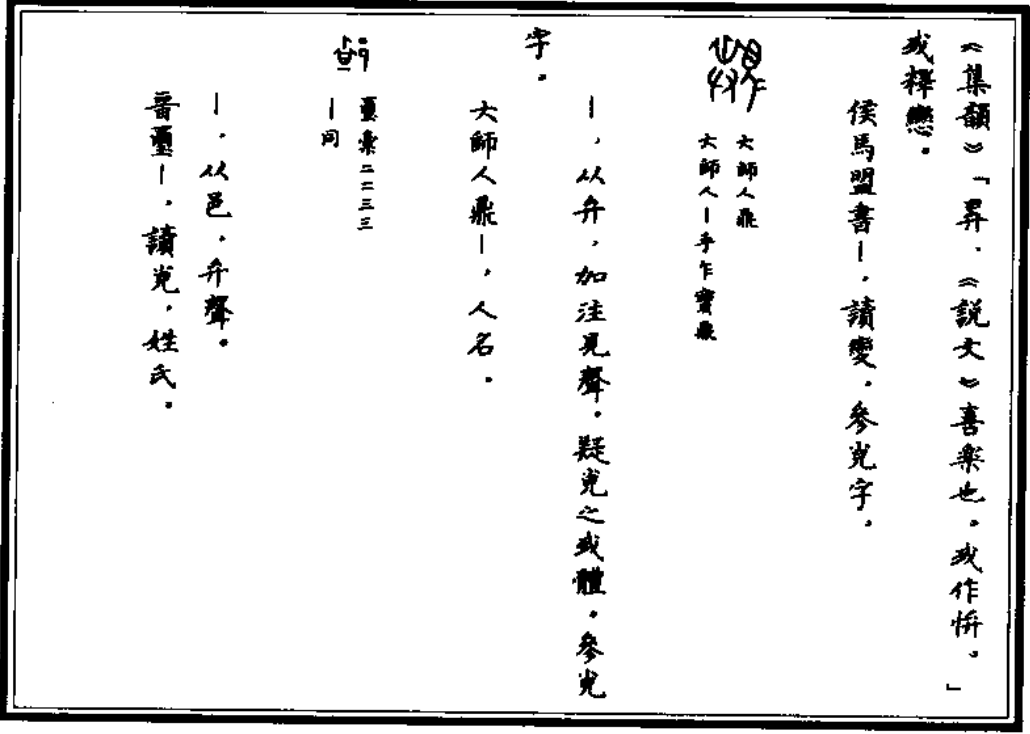 《集韻》「昪，《說文》喜樂也。或作㤓。」
或釋戀。
侯馬盟書－，讀變。參覍字。
大師人鼎
大師人－乎乍寶鼎
－，从弁，加注見聲。疑覍之或體。參覍
字。
大師人鼎－，人名。
璽彙二二三三
－同
－，从邑，弁聲。
晉璽－，讀覍，姓氏。